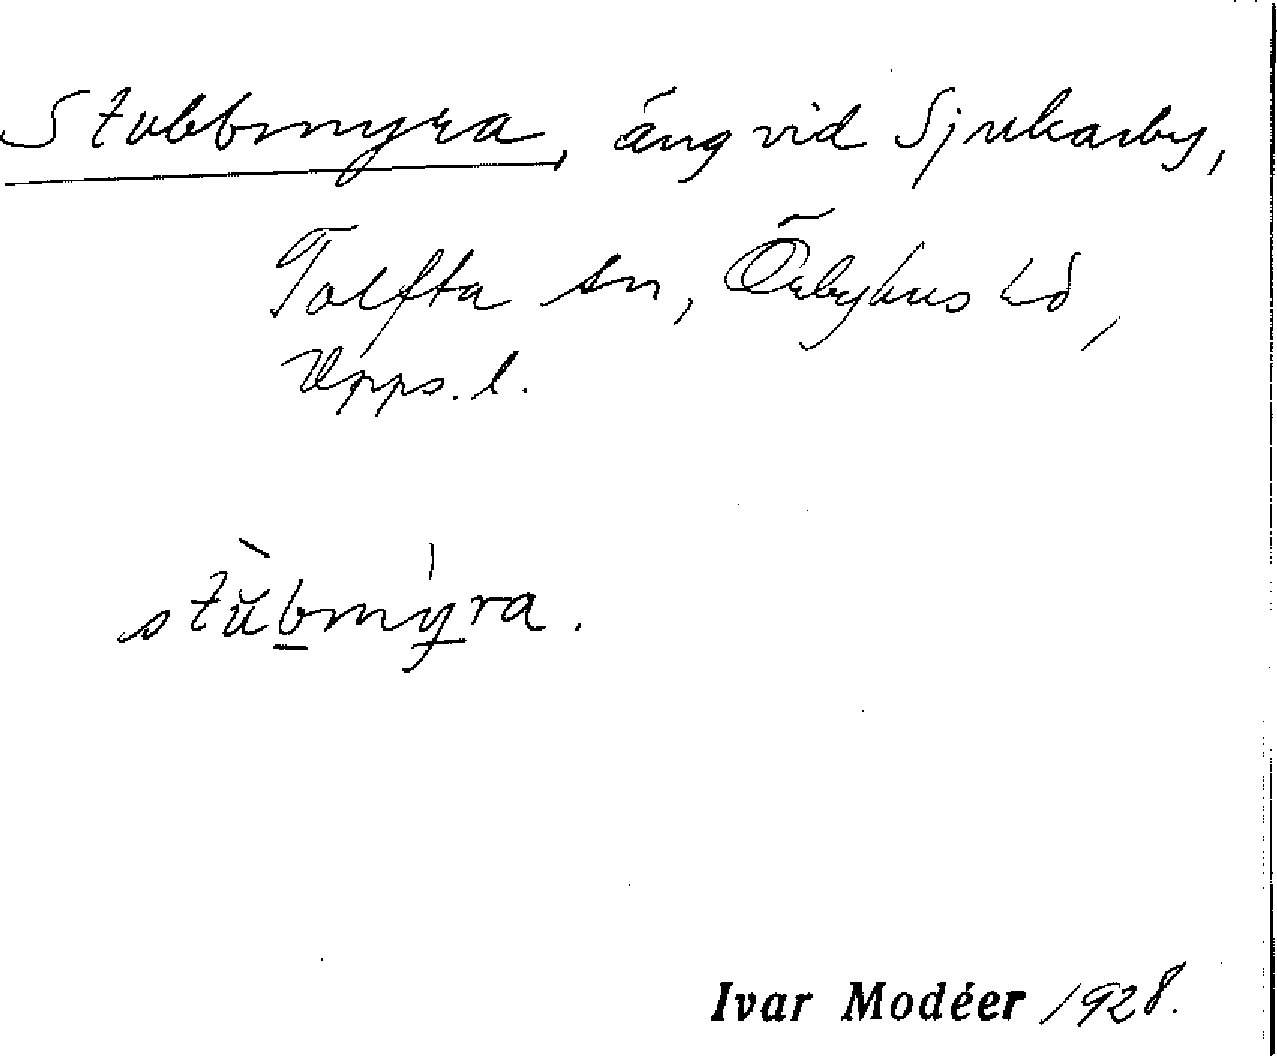 Stubbmyra, äng vid Sjukarby,
Tolfta sn, Örbyhus hd,
Upps. l.
stŭ̀b̲mý̲ra.
Ivar Modéer 1928.